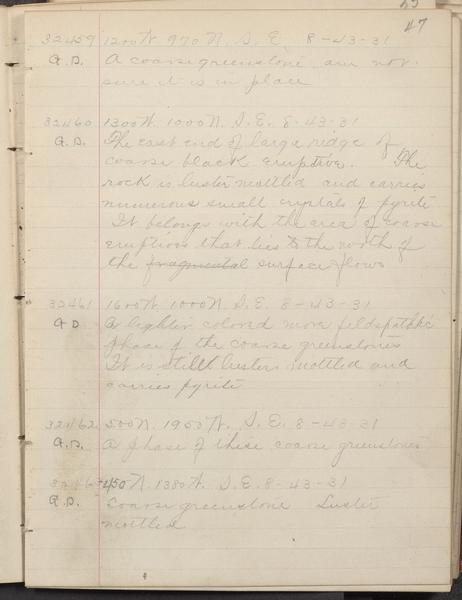 47
32459 1200 W. 970 N. S.E. 8-43-31
G.D. A coarse greenstone am not
sure it is in place
32460 1300 W. 1000 N. S.E. 8-43-31
G.D. The east end of large ridge of
coarse black eruptive. The
rock is luster mottled and carries
numerous small crystals of pyrite
It belongs with the area of coarse
eruptives that lies to the north of
the fragmental surface flows
32461 1600 W. 1000 N. S.E. 8-43-31
G.D. A lighter colored more feldspathic
phase of the coarse greenstones
It is still luster mottled and
carries pyrite
32462 500 N. 1950 W. S.E. 8-43-31
G.D. A phase of these coarse greenstones
450 N. 1380 W. S.E. 8-43-31
G.D. Coarse greenstone Luster
mottled